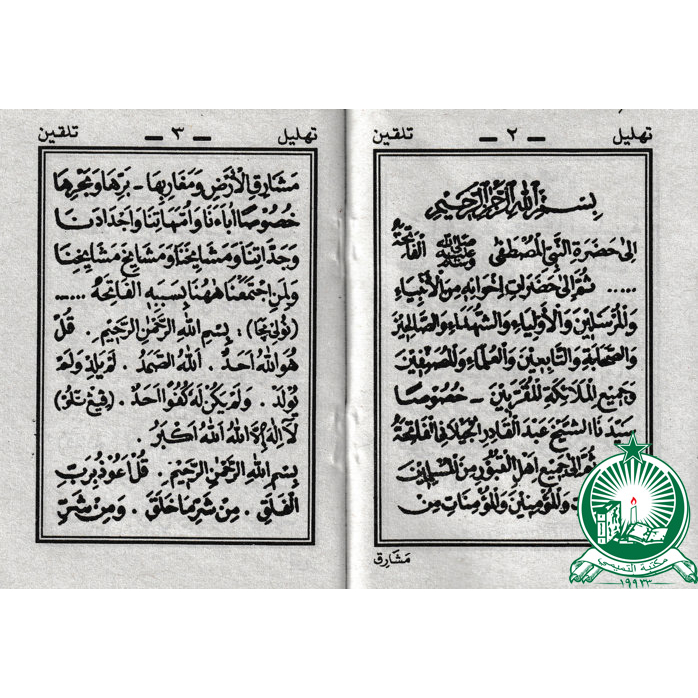 تهليل — ٢ — تلقين
بِسْمِ اللهِ الرَّحْمٰنِ الرَّحِيْمِ
اِلٰى حَضْرَةِ النَّبِيِّ الْمُصْطَفٰى ﷺ اَلْفَاتِحَةُ
..... ثُمَّ اِلٰى حَضَرَاتِ اِخْوَانِهِ مِنَ الْاَنْبِيَاءِ
وَالْمُرْسَلِيْنَ وَالْاَوْلِيَاءِ وَالشُّهَدَاءِ وَالصَّالِحِيْنَ
وَالصَّحَابَةِ وَالتَّابِعِيْنَ وَالْعُلَمَاءِ وَالْمُصَنِّفِيْنَ
وَجَمِيْعِ الْمَلَائِكَةِ الْمُقَرَّبِيْنَ - خُصُوْصًا
سَيِّدَنَا الشَّيْخَ عَبْدَ الْقَادِرِ الْجِيْلَانِي اَلْفَاتِحَةُ
ثُمَّ اِلٰى جَمِيْعِ اَهْلِ الْقُبُوْرِ مِنَ الْمُسْلِمِيْنَ
وَالْمُؤْمِنِيْنَ وَالْمُؤْمِنَاتِ مِنْ
مشارق
تهليل — ٣ — تلقين
مَشَارِقِ الْاَرْضِ وَمَغَارِبِهَا - بَرِّهَا وَبَحْرِهَا
خُصُوْصًا اٰبَاءَنَا وَاُمَّهَاتِنَا وَاَجْدَادَنَا
وَجَدَّاتِنَا وَمَشَايِخَنَا وَمَشَايِخَ مَشَايِخِنَا
وَلِمَنِ اجْتَمَعْنَا هٰهُنَا بِسَبَبِهِ اَلْفَاتِحَةُ .....
بِسْمِ اللهِ الرَّحْمٰنِ الرَّحِيْمِ . قُلْ
هُوَ اللهُ اَحَدٌ . اَللهُ الصَّمَدُ . لَمْ يَلِدْ وَلَمْ
يُوْلَدْ . وَلَمْ يَكُنْ لَهُ كُفُوًا اَحَدٌ .
لَا اِلٰهَ اِلَّا اللهُ اَللهُ اَكْبَرُ .
بِسْمِ اللهِ الرَّحْمٰنِ الرَّحِيْمِ . قُلْ اَعُوْذُ بِرَبِّ
الْفَلَقِ . مِنْ شَرِّ مَا خَلَقَ . وَمِنْ شَرِّ
مكتبة